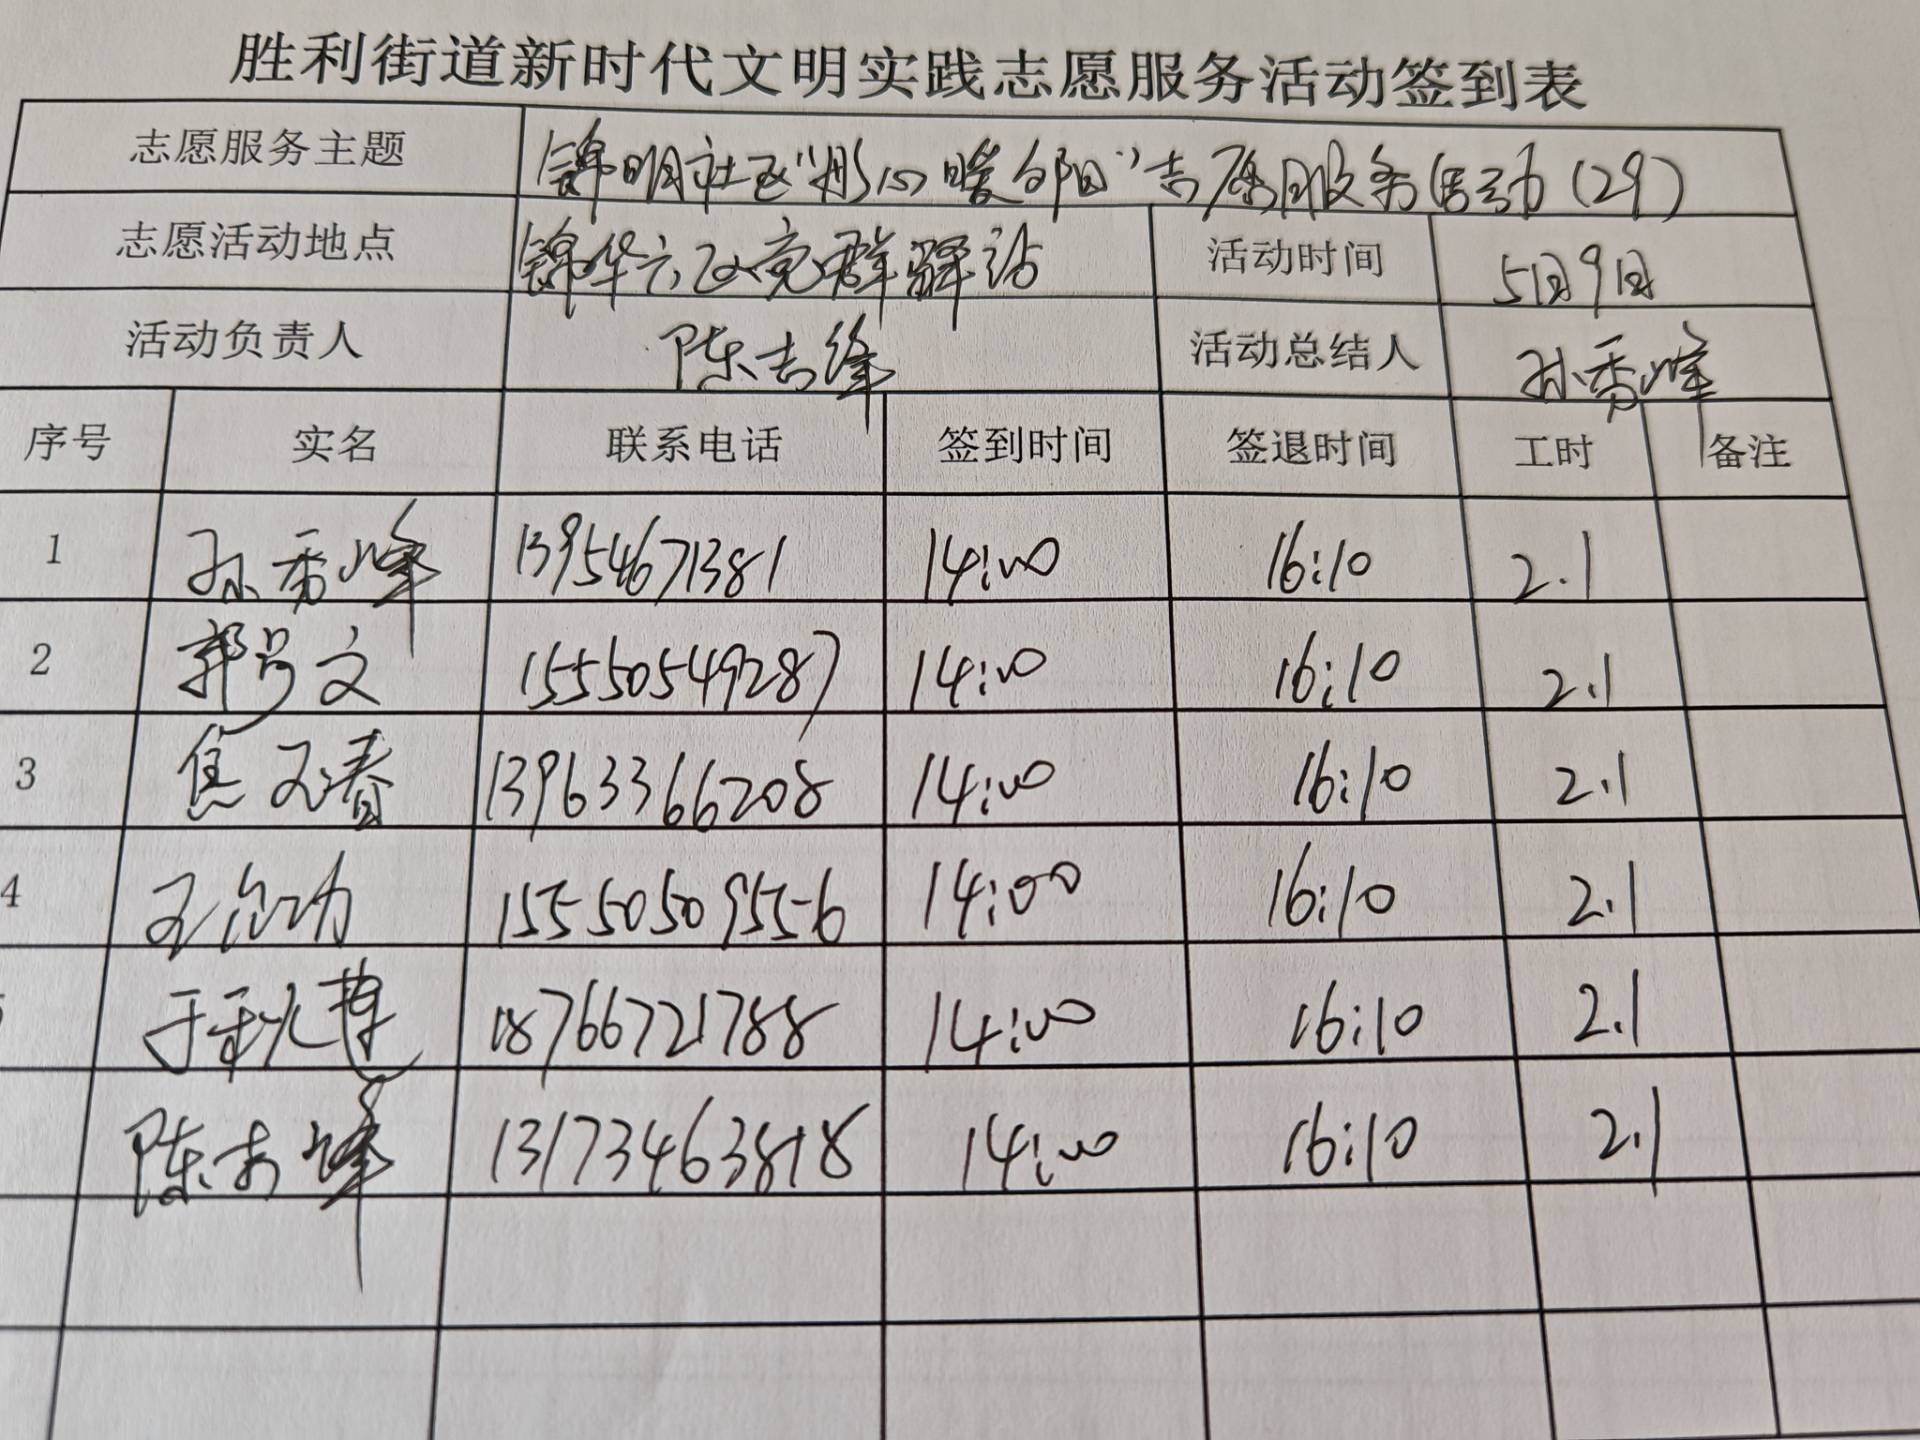 胜利街道新时代文明实践志愿服务活动签到表
志愿服务主题 锦明社区“彤心暖夕阳”志愿服务活动(29)
志愿活动地点 锦华六区党群驿站 活动时间 5月9日
活动负责人 陈吉峰 活动总结人 孙秀峰
序号 实名 联系电话 签到时间 签退时间 工时 备注
1 孙秀峰 13954671381 14:00 16:10 2.1
2 郭号文 15550549287 14:00 16:10 2.1
3 焦玉春 13963366208 14:00 16:10 2.1
4 15550509556 14:00 16:10 2.1
于秋莲 18766721788 14:00 16:10 2.1
陈吉峰 13173463818 14:00 16:10 2.1